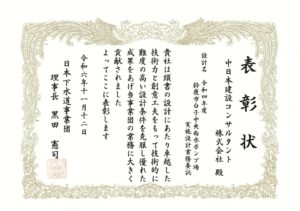 表彰状
中日本建設コンサルタント
株式会社 殿
設計名 令和四年度
鈴鹿市白子中央雨水ポンプ場
実施設計業務委託
貴社は頭書の設計にあたり卓越した
技術力と創意工夫をもって技術的に
難度の高い設計条件を克服し優れた
成果をあげ当事業団の業務に大きく
貢献されました
よってここに表彰します
令和六年十一月十二日
日本下水道事業団
理事長 黒田 憲司